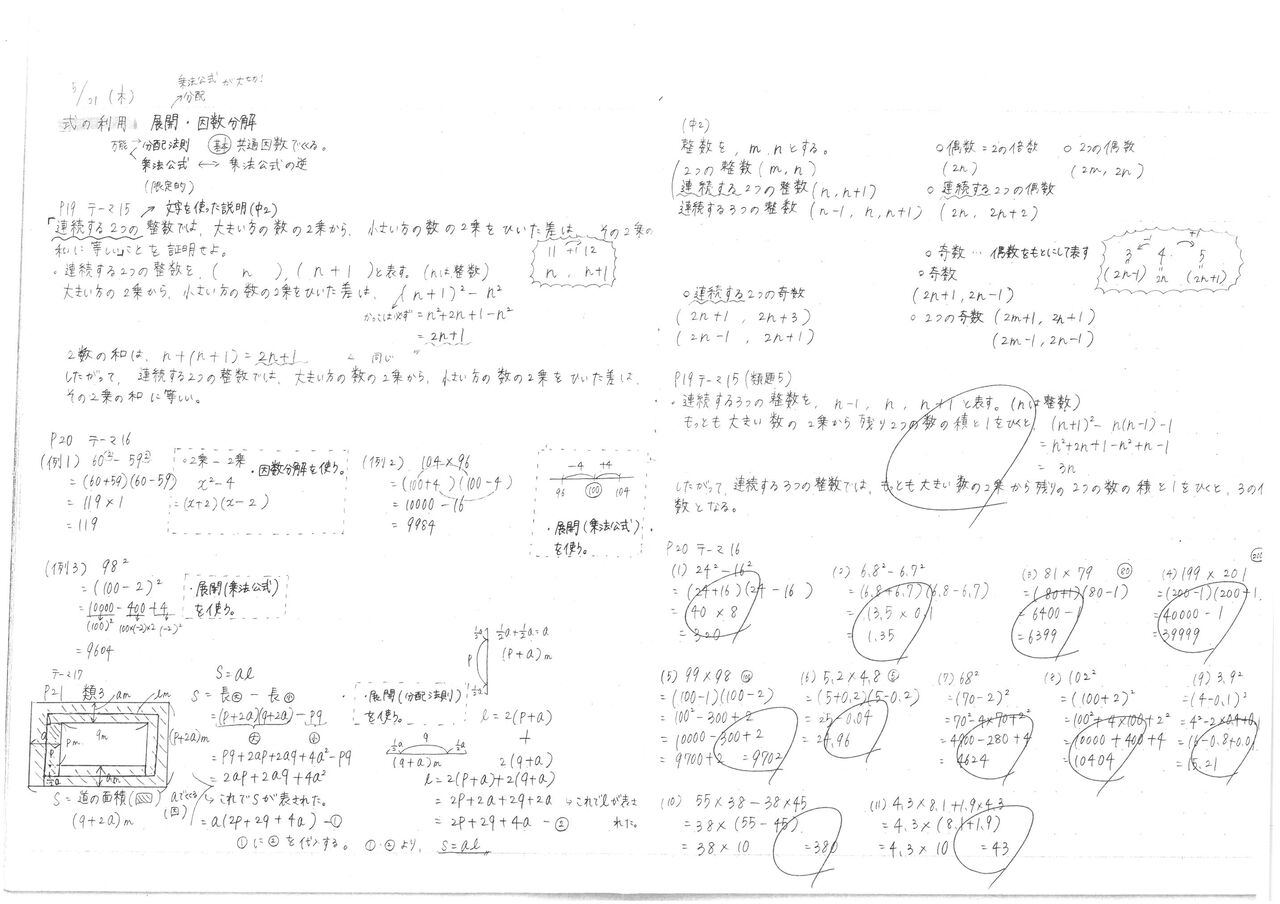 5/21 (木)
乗法公式が大切!
分配
式の利用 展開・因数分解
万能 分配法則 基本 共通因数でくくる。
乗法公式 ←→ 乗法公式の逆
(限定的)
P19 テーマ15 → 文字を使った説明(中2)
「連続する2つの整数では、大きい方の数の2乗から、小さい方の数の2乗をひいた差は、その2数の
和に等しい」ことを証明せよ。
11 +1 12
n, n+1
・連続する2つの整数を、( n ), (n+1)と表す。(nは整数)
大きい方の2乗から、小さい方の数の2乗をひいた差は、(n+1)²-n²
かっこは必ず =n²+2n+1-n²
=2n+1
2数の和は、n+(n+1)=2n+1 ← 同じ
したがって、連続する2つの整数では、大きい方の数の2乗から、小さい方の数の2乗をひいた差は、
その2乗の和に等しい。
P20 テーマ16
(例1) 60²-59²
=(60+59)(60-59)
=119×1
=119
○2乗-2乗
・因数分解を使う。
x²-4
=(x+2)(x-2)
(例2) 104×96
=(100+4)(100-4)
=10000-16
=9984
-4 +4
96 100 104
・展開(乗法公式)
を使う。
(例3) 98²
=(100-2)²
=10000-400+4
(100)² 100×(-2)×2 (-2)²
=9604
・展開(乗法公式)
を使う。
テーマ17
P21 類3
am
lm
qm
pm
a
½a
am
(p+2a)m
S=道の面積( )
(q+2a)m
S=al
S=長㊛-長㊉
=(p+2a)(q+2a)-pq
=pq+2ap+2aq+4a²-pq
=2ap+2aq+4a²
→これでSが表された。
aでくくる
(因)
=a(2p+2q+4a)-①
①に②を代入する。 ①・②より、S=al
・展開(分配法則)
を使う。
½a
p
½a
½a+½a=a
(p+a)m
½a q ½a
(q+a)m
l=2(p+a)
+
2(q+a)
l=2(p+a)+2(q+a)
=2p+2a+2q+2a →これでlが表さ
=2p+2q+4a-② れた。
(中2)
整数を、m,nとする。
2つの整数(m,n)
連続する2つの整数(n,n+1)
連続する3つの整数(n-1, n, n+1)
○偶数=2の倍数
(2n)
○2つの偶数
(2m, 2n)
○連続する2つの偶数
(2n, 2n+2)
○奇数…偶数をもとにして表す
-1 +1
3 4 5
(2n-1) 2n (2n+1)
○奇数
(2n+1, 2n-1)
○連続する2つの奇数
(2n+1, 2n+3)
(2n-1, 2n+1)
○2つの奇数(2m+1, 2n+1)
(2m-1, 2n-1)
P19テーマ15(類題5)
・連続する3つの整数を、n-1, n, n+1と表す。(nは整数)
もっとも大きい数の2乗から残り2つの数の積と1をひくと、(n+1)²-n(n-1)-1
=n²+2n+1-n²+n-1
=3n
したがって、連続する3つの整数では、もっとも大きい数の2乗から残りの2つの数の積と1をひくと、3の倍
数となる。
P20 テーマ16
(1) 24²-16²
=(24+16)(24-16)
=40×8
=320
(2) 6.8²-6.7²
=(6.8+6.7)(6.8-6.7)
=13.5×0.1
=1.35
(3) 81×79 80
=(80+1)(80-1)
=6400-1
=6399
(4) 199×201 200
=(200-1)(200+1)
=40000-1
=39999
(5) 99×98 100
=(100-1)(100-2)
=100²-300+2
=10000-300+2
=9700+2 =9702
(6) 5.2×4.8 5
=(5+0.2)(5-0.2)
=25-0.04
=24.96
(7) 68²
=(70-2)²
=70²-4×70+2²
=4900-280+4
=4624
(8) 102²
=(100+2)²
=100²+4×100+2²
=10000+400+4
=10404
(9) 3.9²
=(4-0.1)²
=4²-2×0.4+0.1
=16-0.8+0.01
=15.21
(10) 55×38-38×45
=38×(55-45)
=38×10 =380
(11) 4.3×8.1+1.9×4.3
=4.3×(8.1+1.9)
=4.3×10 =43